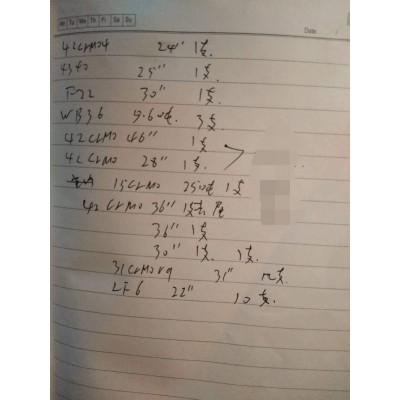 Mo Tu We Th Fr Sa Su
Date
42CrMo4 24" 1支.
4340 25" 1支.
P22 30" 1支.
WB36 9.60吨. 3支
42CrMo 46" 1支
42CrMo 28" 1支.
15CrMo 2500吨 1支
42CrMo 36" 1支
36" 1支
30" 1支. 1支.
31CrMoV9 31" 12支.
LF6 22" 10支.